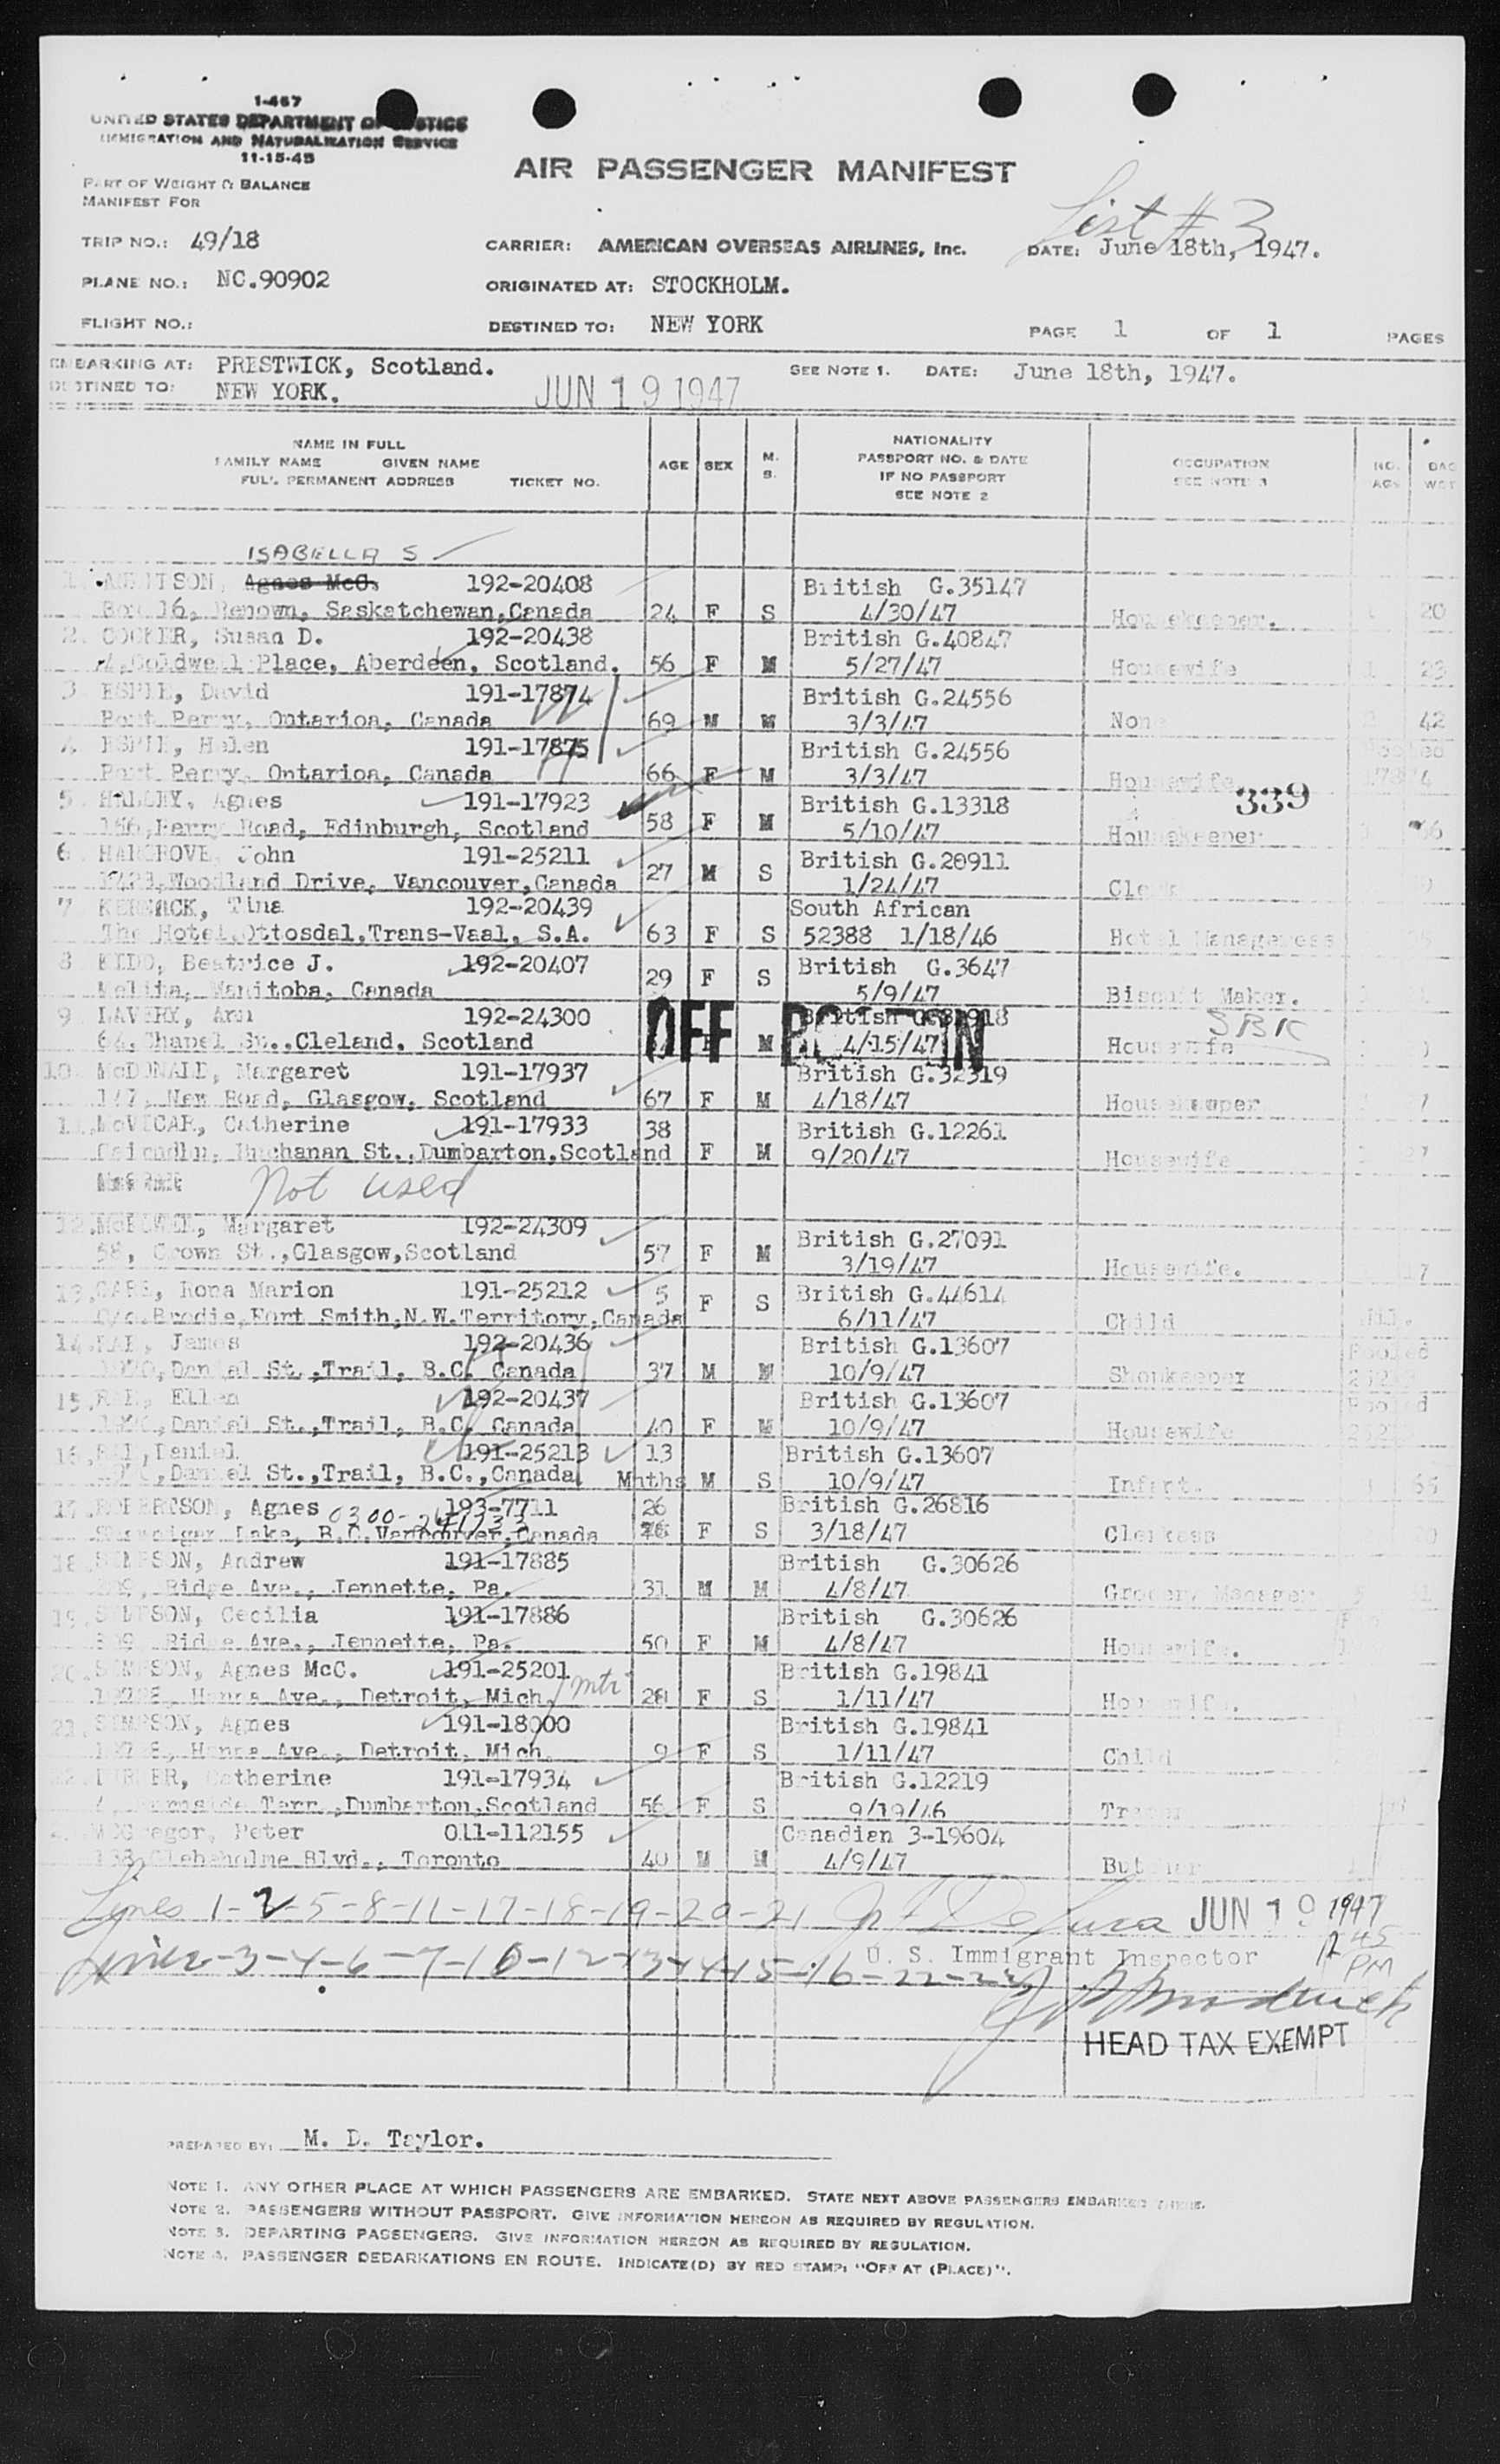 1-467
UNITED STATES DEPARTMENT OF JUSTICE
IMMIGRATION AND NATURALIZATION SERVICE
11-15-45
PART OF WEIGHT & BALANCE
MANIFEST FOR
AIR PASSENGER MANIFEST
List # 3
TRIP NO.: 49/18 CARRIER: AMERICAN OVERSEAS AIRLINES, Inc. DATE: June 18th, 1947.
PLANE NO.: NC.90902 ORIGINATED AT: STOCKHOLM.
FLIGHT NO.: DESTINED TO: NEW YORK PAGE 1 OF 1 PAGES
EMBARKING AT: PRESTWICK, Scotland. SEE NOTE 1. DATE: June 18th, 1947.
DESTINED TO: NEW YORK. JUN 19 1947
NAME IN FULL
FAMILY NAME GIVEN NAME
FULL PERMANENT ADDRESS TICKET NO. AGE SEX M. S. NATIONALITY PASSPORT NO. & DATE IF NO PASSPORT SEE NOTE 2 OCCUPATION SEE NOTE 3 NO. BAG
ISABELLA S
1. Agnes McC. 192-20408 British G.35147
Box 16, Renown, Saskatchewan, Canada 24 F S 4/30/47 Housekeeper. 20
2. COOPER, Susan D. 192-20438 British G.40847
4, Coldwell Place, Aberdeen, Scotland. 56 F M 5/27/47 Housewife 1 23
3 ESPIE, David 191-17874 British G.24556
Port Perry, Ontarioa, Canada 69 M M 3/3/47 None 42
4. ESPIE, Helen 191-17875 British G.24556 Pooled
Port Perry, Ontarioa, Canada 66 F M 3/3/47 Housewife 17874
339
5. Agnes 191-17923 British G.13318
166, Ferry Road, Edinburgh, Scotland 58 F M 5/10/47 Housekeeper
6. HARGROVE, John 191-25211 British G.20911
Woodland Drive, Vancouver, Canada 27 M S 1/24/47 Clerk
7 Tina 192-20439 South African
The Hotel, Ottosdal, Trans-Vaal, S.A. 63 F S 52388 1/18/46 Hotel Manageress
8 KIDD, Beatrice J. 192-20407 British G.3647
Melita, Manitoba, Canada 29 F S 5/9/47 Biscuit Maker.
9 LAVERY, Ann 192-24300 British
64, Chapel St., Cleland, Scotland M 4/15/47 Housewife
OFF BOSTON
SBK
10. McDONALD, Margaret 191-17937 British G.32319
147, New Road, Glasgow, Scotland 67 F M 4/18/47 Housekeeper
11. McVICAR, Catherine 191-17933 38 British G.12261
Buchanan St., Dumbarton, Scotland F M 9/20/47 Housewife
Not used
12. Margaret 192-24309 British G.27091
58, Crown St., Glasgow, Scotland 57 F M 3/19/47 Housewife.
13. Rona Marion 191-25212 5 British G.44614
C/o. Brodie, Fort Smith, N.W. Territory, Canada F S 6/11/47 Child Nil.
14. RAE, James 192-20436 British G.13607 Pooled
Daniel St., Trail, B.C. Canada 37 M M 10/9/47 Shopkeeper
15. RAE, Ellen 192-20437 British G.13607 Pooled
Daniel St., Trail, B.C. Canada 40 F M 10/9/47 Housewife
16. RAE, Daniel 191-25213 13 British G.13607
Daniel St., Trail, B.C., Canada Mnths M S 10/9/47 Infant. 65
17. ROBERTSON, Agnes 193-7711 26 British G.26816
Lake, B.C. Vancouver, Canada 26 F S 3/18/47 Clerkess
18. SIMPSON, Andrew 191-17885 British G.30626
209, Ridge Ave., Jennette, Pa. 31 M M 4/8/47 Grocery Manager
19. SIMPSON, Cecilia 191-17886 British G.30626
209 Ridge Ave., Jennette, Pa. 50 F M 4/8/47 Housewife.
20. SIMPSON, Agnes McC. 191-25201 British G.19841
Ave., Detroit, Mich. 28 F S 1/11/47 Housewife.
21. SIMPSON, Agnes 191-18000 British G.19841
Ave., Detroit, Mich. 9 F S 1/11/47 Child
22. Catherine 191-17934 British G.12219
Terr., Dumbarton, Scotland 56 F S 9/19/46 Tracer
McGregor, Peter 011-112155 Canadian 3-19604
Glebeholme Blvd., Toronto 40 M M 4/9/47 Butcher
Lines 1-2-5-8-11-17-18-19-20-21 JUN 19 1947
U. S. Immigrant Inspector 45 PM
Lines 3-4-6-7-10-12-13-14-15-16-22-23
HEAD TAX EXEMPT
PREPARED BY: M. D. Taylor.
NOTE 1. ANY OTHER PLACE AT WHICH PASSENGERS ARE EMBARKED. STATE NEXT ABOVE PASSENGERS EMBARKED THERE.
NOTE 2. PASSENGERS WITHOUT PASSPORT. GIVE INFORMATION HEREON AS REQUIRED BY REGULATION.
NOTE 3. DEPARTING PASSENGERS. GIVE INFORMATION HEREON AS REQUIRED BY REGULATION.
NOTE 4. PASSENGER DEBARKATIONS EN ROUTE. INDICATE(D) BY RED STAMP: "OFF AT (PLACE)".